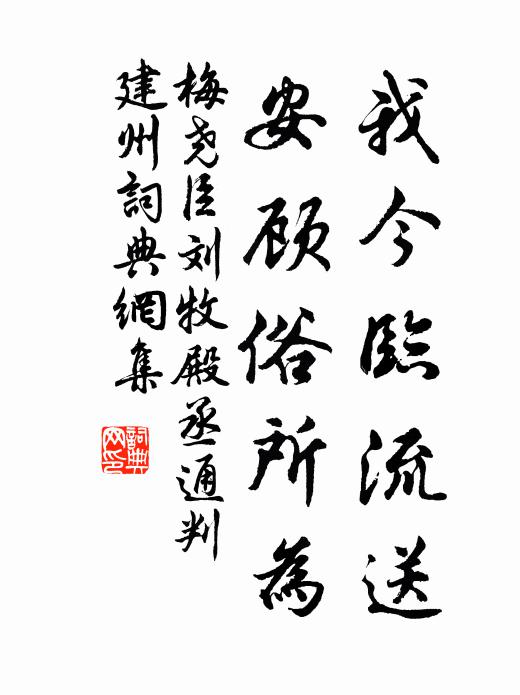 我今臨流送
安顾俗所為
梅尧臣刘牧殿丞通判
建州詞典網集
詞典
网印